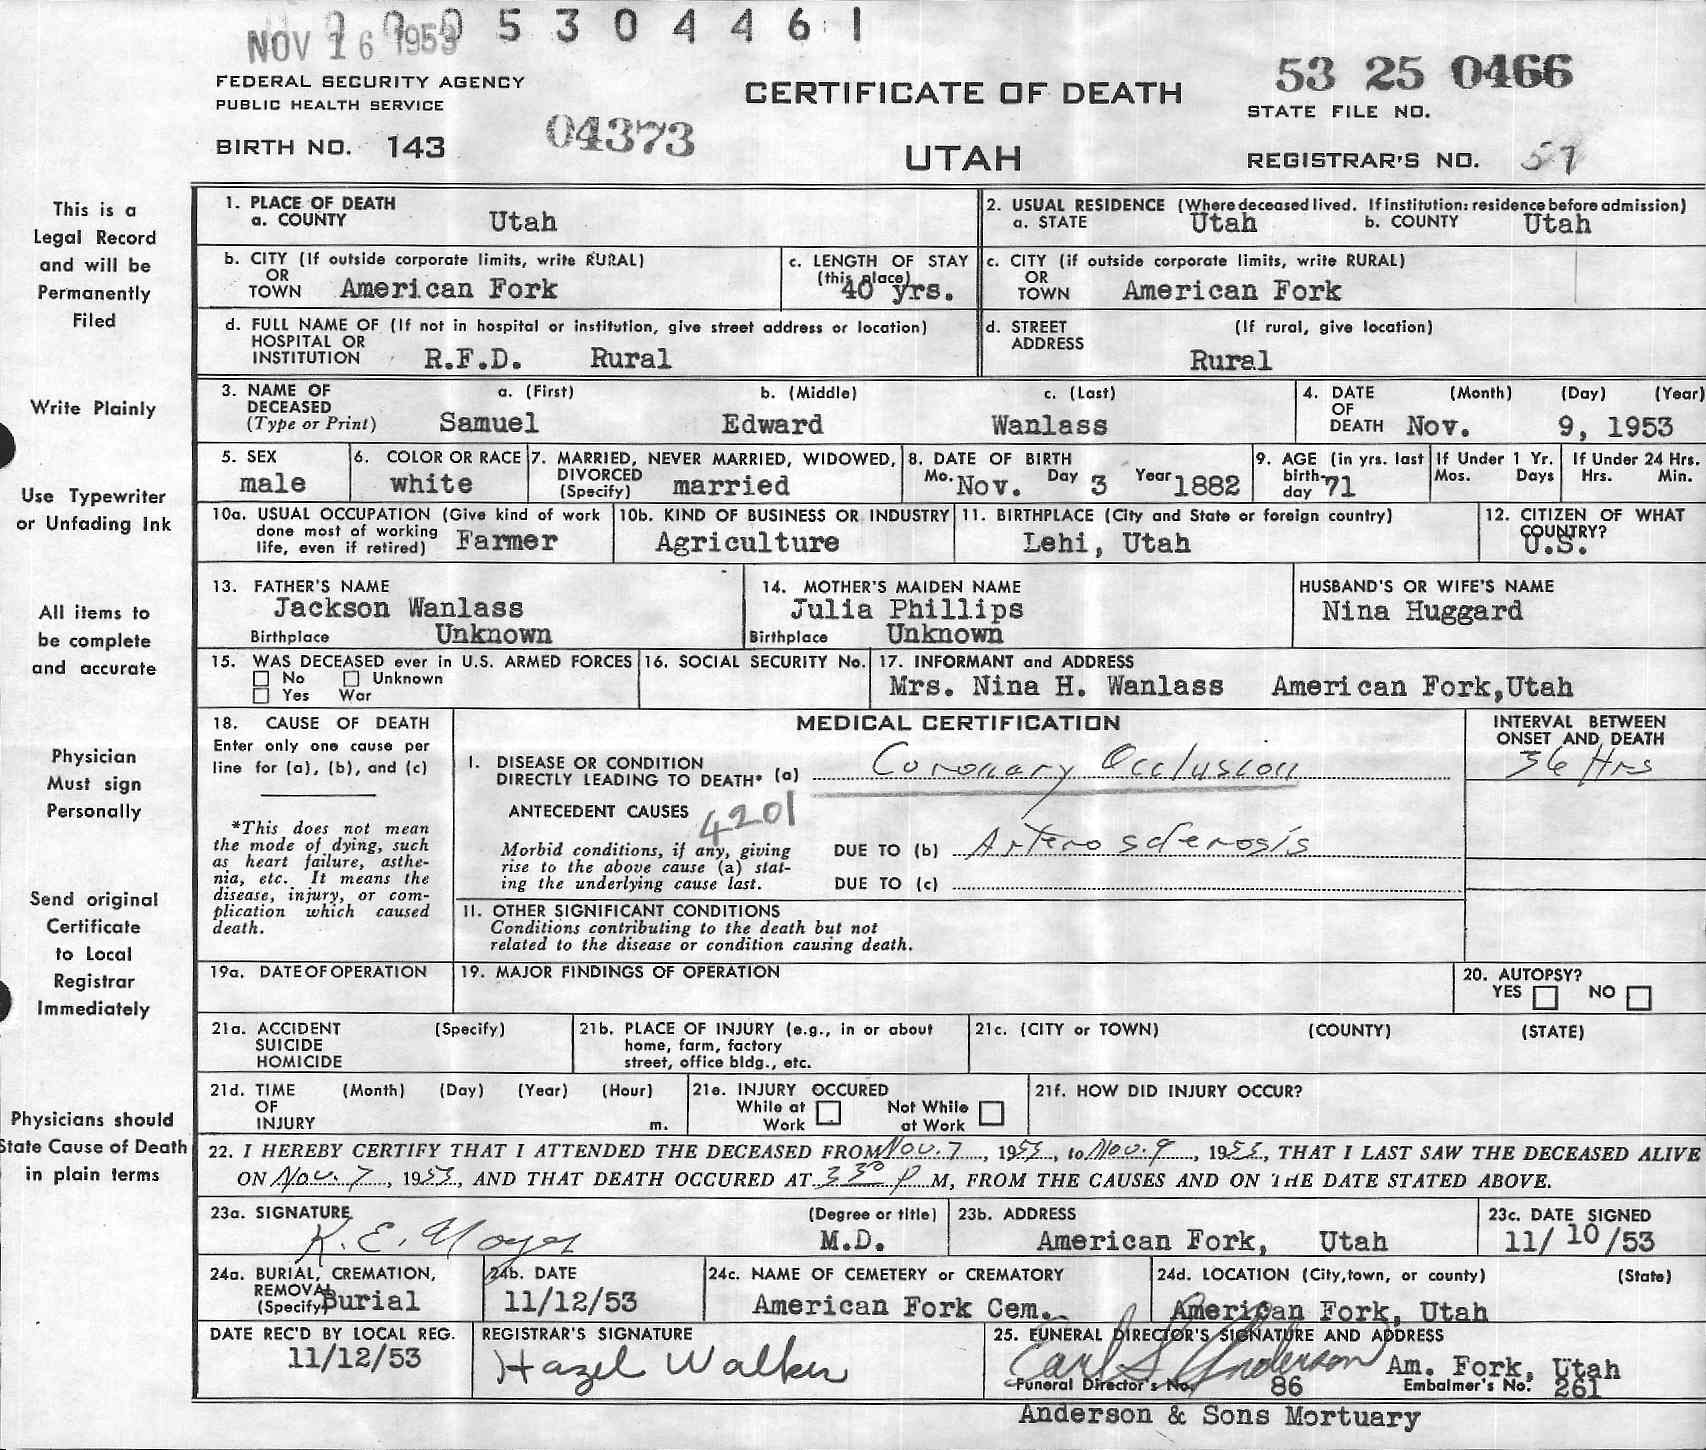 NOV 16 1953
0005304461
FEDERAL SECURITY AGENCY
PUBLIC HEALTH SERVICE
BIRTH NO. 143
04373
CERTIFICATE OF DEATH
UTAH
53 25 0466
STATE FILE NO.
REGISTRAR'S NO. 57
This is a
Legal Record
and will be
Permanently
Filed
Write Plainly
Use Typewriter
or Unfading Ink
All items to
be complete
and accurate
Physician
Must sign
Personally
Send original
Certificate
to Local
Registrar
Immediately
Physicians should
State Cause of Death
in plain terms
1. PLACE OF DEATH
a. COUNTY Utah
2. USUAL RESIDENCE (Where deceased lived. If institution: residence before admission)
a. STATE Utah b. COUNTY Utah
b. CITY (If outside corporate limits, write RURAL)
OR
TOWN American Fork
c. LENGTH OF STAY
(this place)
40 yrs.
c. CITY (if outside corporate limits, write RURAL)
OR
TOWN American Fork
d. FULL NAME OF (If not in hospital or institution, give street address or location)
HOSPITAL OR
INSTITUTION R.F.D. Rural
d. STREET (If rural, give location)
ADDRESS
Rural
3. NAME OF a. (First) b. (Middle) c. (Last)
DECEASED
(Type or Print) Samuel Edward Wanlass
4. DATE (Month) (Day) (Year)
OF
DEATH Nov. 9, 1953
5. SEX
male
6. COLOR OR RACE
white
7. MARRIED, NEVER MARRIED, WIDOWED,
DIVORCED
(Specify) married
8. DATE OF BIRTH
Mo. Nov. Day 3 Year 1882
9. AGE (in yrs. last
birth-
day 71
If Under 1 Yr.
Mos. Days
If Under 24 Hrs.
Hrs. Min.
10a. USUAL OCCUPATION (Give kind of work
done most of working
life, even if retired) Farmer
10b. KIND OF BUSINESS OR INDUSTRY
Agriculture
11. BIRTHPLACE (City and State or foreign country)
Lehi, Utah
12. CITIZEN OF WHAT
COUNTRY?
U.S.
13. FATHER'S NAME
Jackson Wanlass
Birthplace Unknown
14. MOTHER'S MAIDEN NAME
Julia Phillips
Birthplace Unknown
HUSBAND'S OR WIFE'S NAME
Nina Huggard
15. WAS DECEASED ever in U.S. ARMED FORCES
No Unknown
Yes War
16. SOCIAL SECURITY No.
17. INFORMANT and ADDRESS
Mrs. Nina H. Wanlass American Fork,Utah
18. CAUSE OF DEATH
Enter only one cause per
line for (a), (b), and (c)
*This does not mean
the mode of dying, such
as heart failure, asthe-
nia, etc. It means the
disease, injury, or com-
plication which caused
death.
MEDICAL CERTIFICATION
I. DISEASE OR CONDITION
DIRECTLY LEADING TO DEATH* (a) Coronary Occlusion
ANTECEDENT CAUSES
4201
Morbid conditions, if any, giving
rise to the above cause (a) stat-
ing the underlying cause last.
DUE TO (b) Arterosclerosis
DUE TO (c)
II. OTHER SIGNIFICANT CONDITIONS
Conditions contributing to the death but not
related to the disease or condition causing death.
INTERVAL BETWEEN
ONSET AND DEATH
36 Hrs
19a. DATE OF OPERATION
19. MAJOR FINDINGS OF OPERATION
20. AUTOPSY?
YES NO
21a. ACCIDENT (Specify)
SUICIDE
HOMICIDE
21b. PLACE OF INJURY (e.g., in or about
home, farm, factory
street, office bldg., etc.
21c. (CITY or TOWN) (COUNTY) (STATE)
21d. TIME (Month) (Day) (Year) (Hour)
OF
INJURY m.
21e. INJURY OCCURED
While at Work Not While at Work
21f. HOW DID INJURY OCCUR?
22. I HEREBY CERTIFY THAT I ATTENDED THE DECEASED FROM Nov. 7, 1953, to Nov. 9, 1953, THAT I LAST SAW THE DECEASED ALIVE
ON Nov. 7, 1953, AND THAT DEATH OCCURED AT 3 30 P M, FROM THE CAUSES AND ON THE DATE STATED ABOVE.
23a. SIGNATURE (Degree or title)
K. E. M.D.
23b. ADDRESS
American Fork, Utah
23c. DATE SIGNED
11/ 10 /53
24a. BURIAL, CREMATION,
REMOVAL
(Specify) Burial
24b. DATE
11/12/53
24c. NAME OF CEMETERY or CREMATORY
American Fork Cem.
24d. LOCATION (City,town, or county) (State)
American Fork, Utah
DATE REC'D BY LOCAL REG.
11/12/53
REGISTRAR'S SIGNATURE
Hazel Walker
25. FUNERAL DIRECTOR'S SIGNATURE AND ADDRESS
Earl S Anderson Am. Fork, Utah
Funeral Director's No. 86 Embalmer's No. 261
Anderson & Sons Mortuary